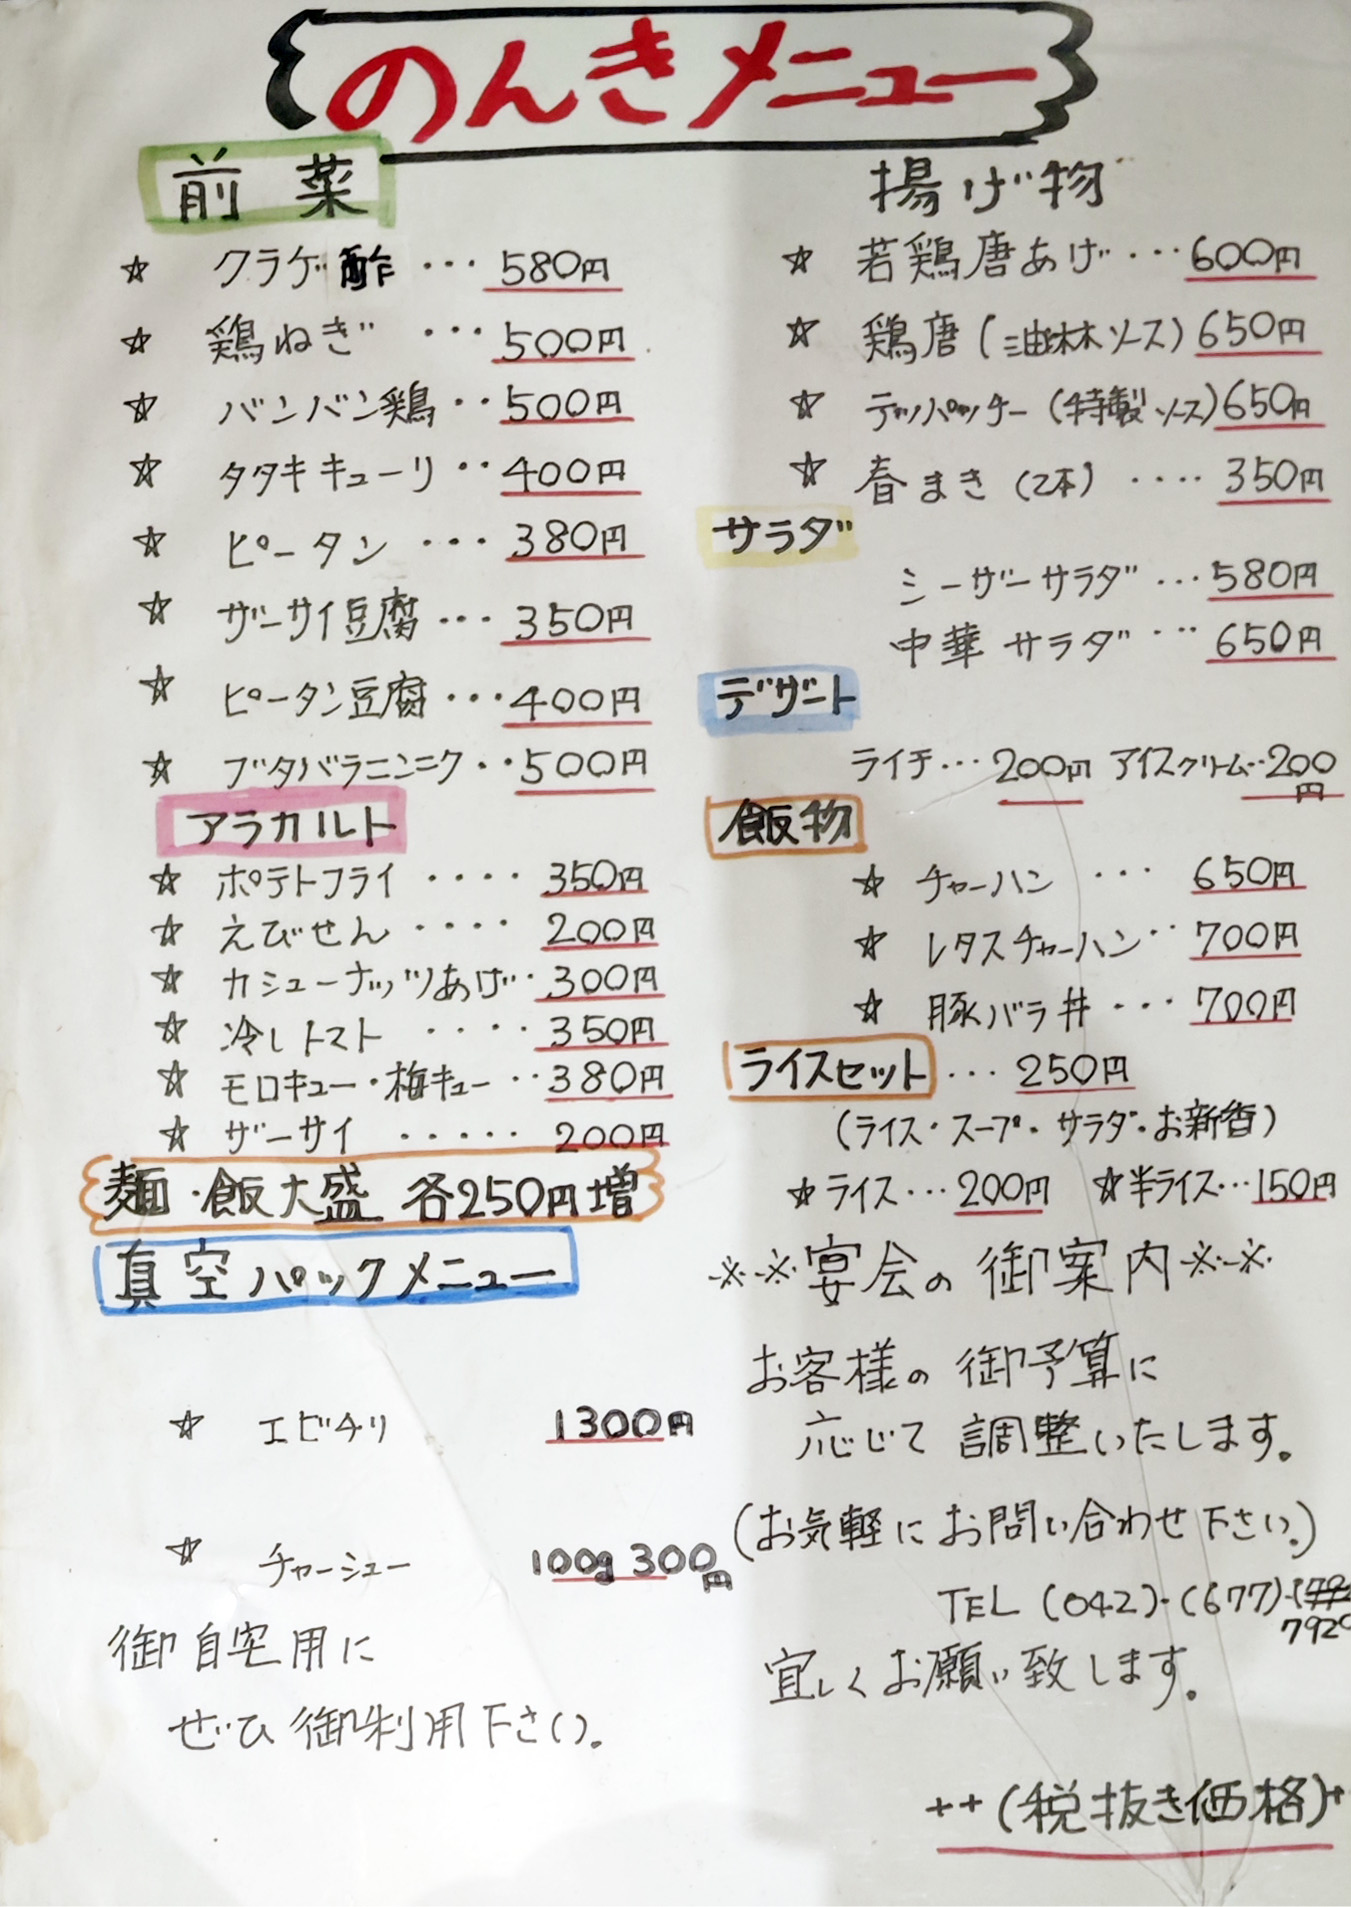 のんきメニュー
前菜
☆ クラゲ酢・・・580円
☆ 鶏ねぎ ・・・500円
☆ バンバン鶏・・500円
☆ タタキキューリ・・400円
☆ ピータン ・・・380円
☆ ザーサイ豆腐・・・350円
☆ ピータン豆腐・・・400円
☆ ブタバラニンニク・・500円
アラカルト
☆ ポテトフライ ・・・・350円
☆ えびせん ・・・・200円
☆ カシューナッツあげ・・300円
☆ 冷しトマト ・・・・350円
☆ モロキュー・梅キュー・・380円
☆ ザーサイ ・・・・・200円
麺・飯大盛 各250円増
真空パックメニュー
☆ エビチリ 1300円
☆ チャーシュー 100g 300円
御自宅用に
ぜひ御利用下さい。
揚げ物
☆ 若鶏唐あげ・・・600円
☆ 鶏唐(油淋ソース)650円
☆ デッパッチー(特製ソース)650円
☆ 春まき(2本)・・・・350円
サラダ
シーザーサラダ・・・580円
中華サラダ・・・650円
デザート
ライチ・・・200円 アイスクリーム・・200円
飯物
☆ チャーハン ・・・650円
☆ レタスチャーハン・・700円
☆ 豚バラ丼・・・700円
ライスセット・・・250円
(ライス・スープ・サラダ・お新香)
☆ライス・・・200円 ☆半ライス・・・150円
※※宴会の御案内※※
お客様の御予算に
応じて調整いたします。
(お気軽にお問い合わせ下さい。)
TEL (042)-(677)-
7920
宜しくお願い致します。
++(税抜き価格)+